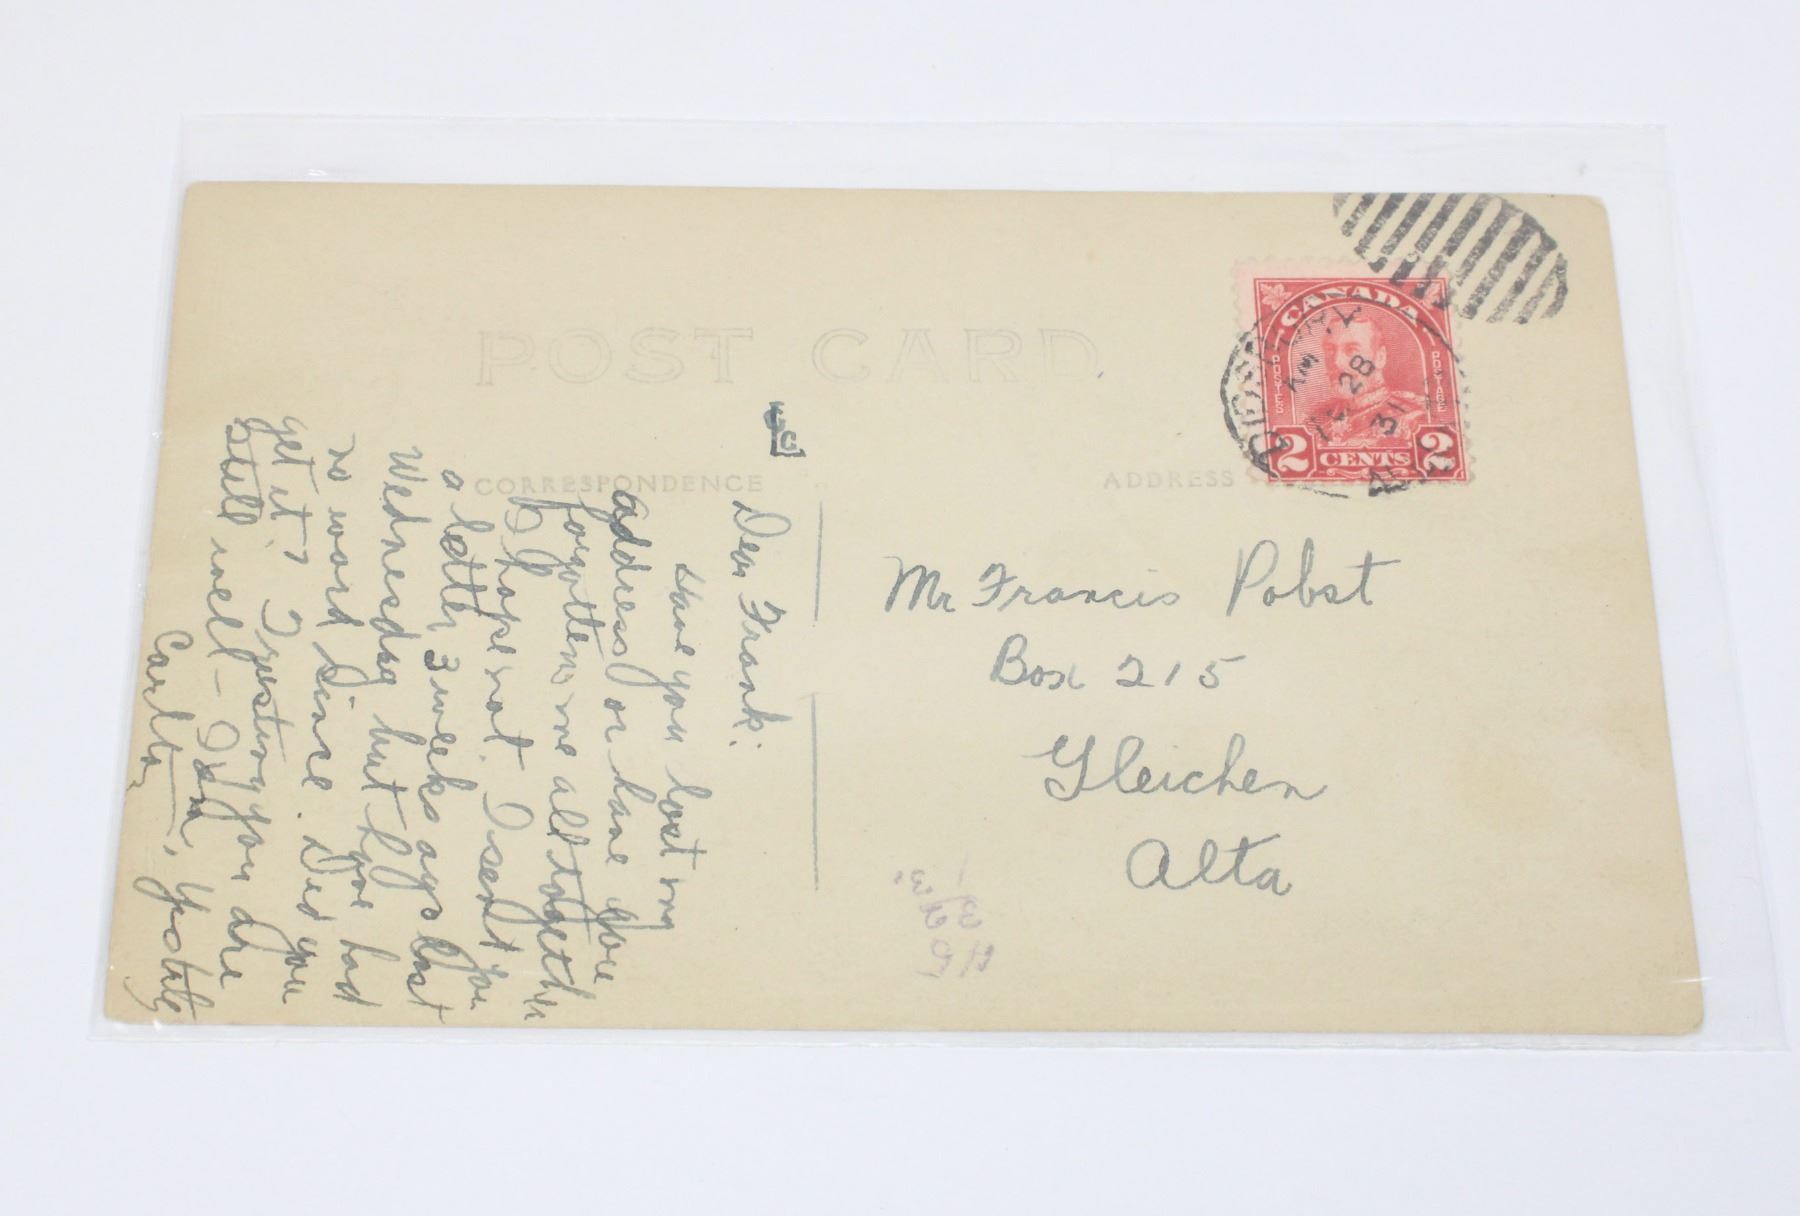 POST CARD
CORRESPONDENCE
ADDRESS
CANADA
POSTES
POSTAGE
2 CENTS 2
AM
28
31
Dear Frank:
Have you lost my
address or have you
forgotten me alltogether
I hope not. I sent you
a letter 3 weeks ago last
Wednesday but have had
no word since. Did you
get it? Trusting you are
still well - I am, yours truly
Carlton
Mr Francis Pobst
Box 215
Gleichen
Alta